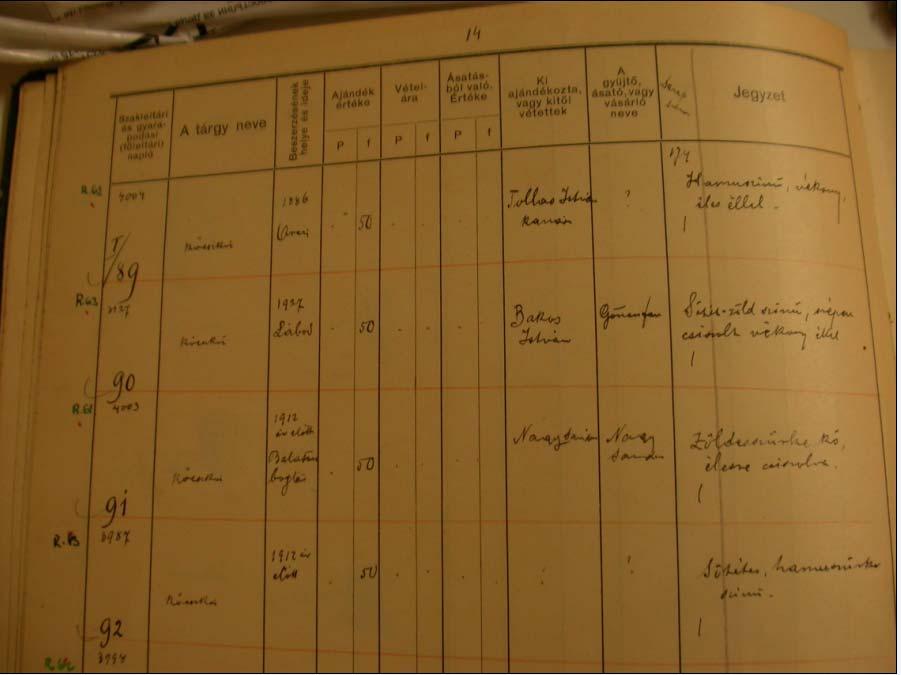 14
Szakleltári
és gyara-
podási
(főleltári)
napló
A tárgy neve
Beszerzésének
helye és ideje
Ajándék
értéke
P f
Vétel-
ára
P f
Ásatás-
ból való.
Értéke
P f
Ki
ajándékozta,
vagy kitől
vétettek
A
gyűjtő,
ásató, vagy
vásárló
neve
Jegyzet
R.62
4004
1886
50
István
kanász
?
Hamuszinü, vékony,
éles éllel.
1
I/89
R.63
1927
Lábod
50
Bakos
István
zöld szinü, szépen
csiszolt vékony éllel
1
90
4003
1912
év előtt
Balaton
boglár
50
Nagy Sándor
Nagy
Sándor
Zöldesszürke kő,
élesre csiszolva.
1
91
3987
1912 év
előtt
50
Sötétes, hamuszürke
szinü.
1
92
3994